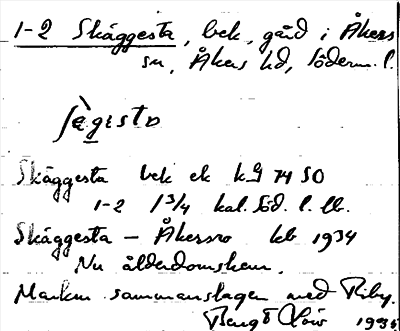 1-2 Skäggesta, bek, gård i Åkers
sn, Åkers hd, Söderm. l.
Skäggesta bek ek kg 74 SO
1-2 1 3/4 kal. Söd. l. lb.
Skäggesta – Åkersbro kb 1934
Nu ålderdomshem.
Marken sammanslagen med Riby.
Bengt 1935